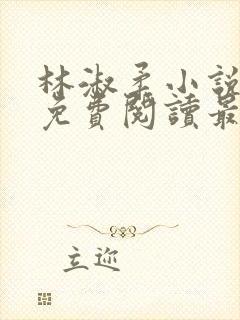 林淑柔小說
免費閱讀最
立迩